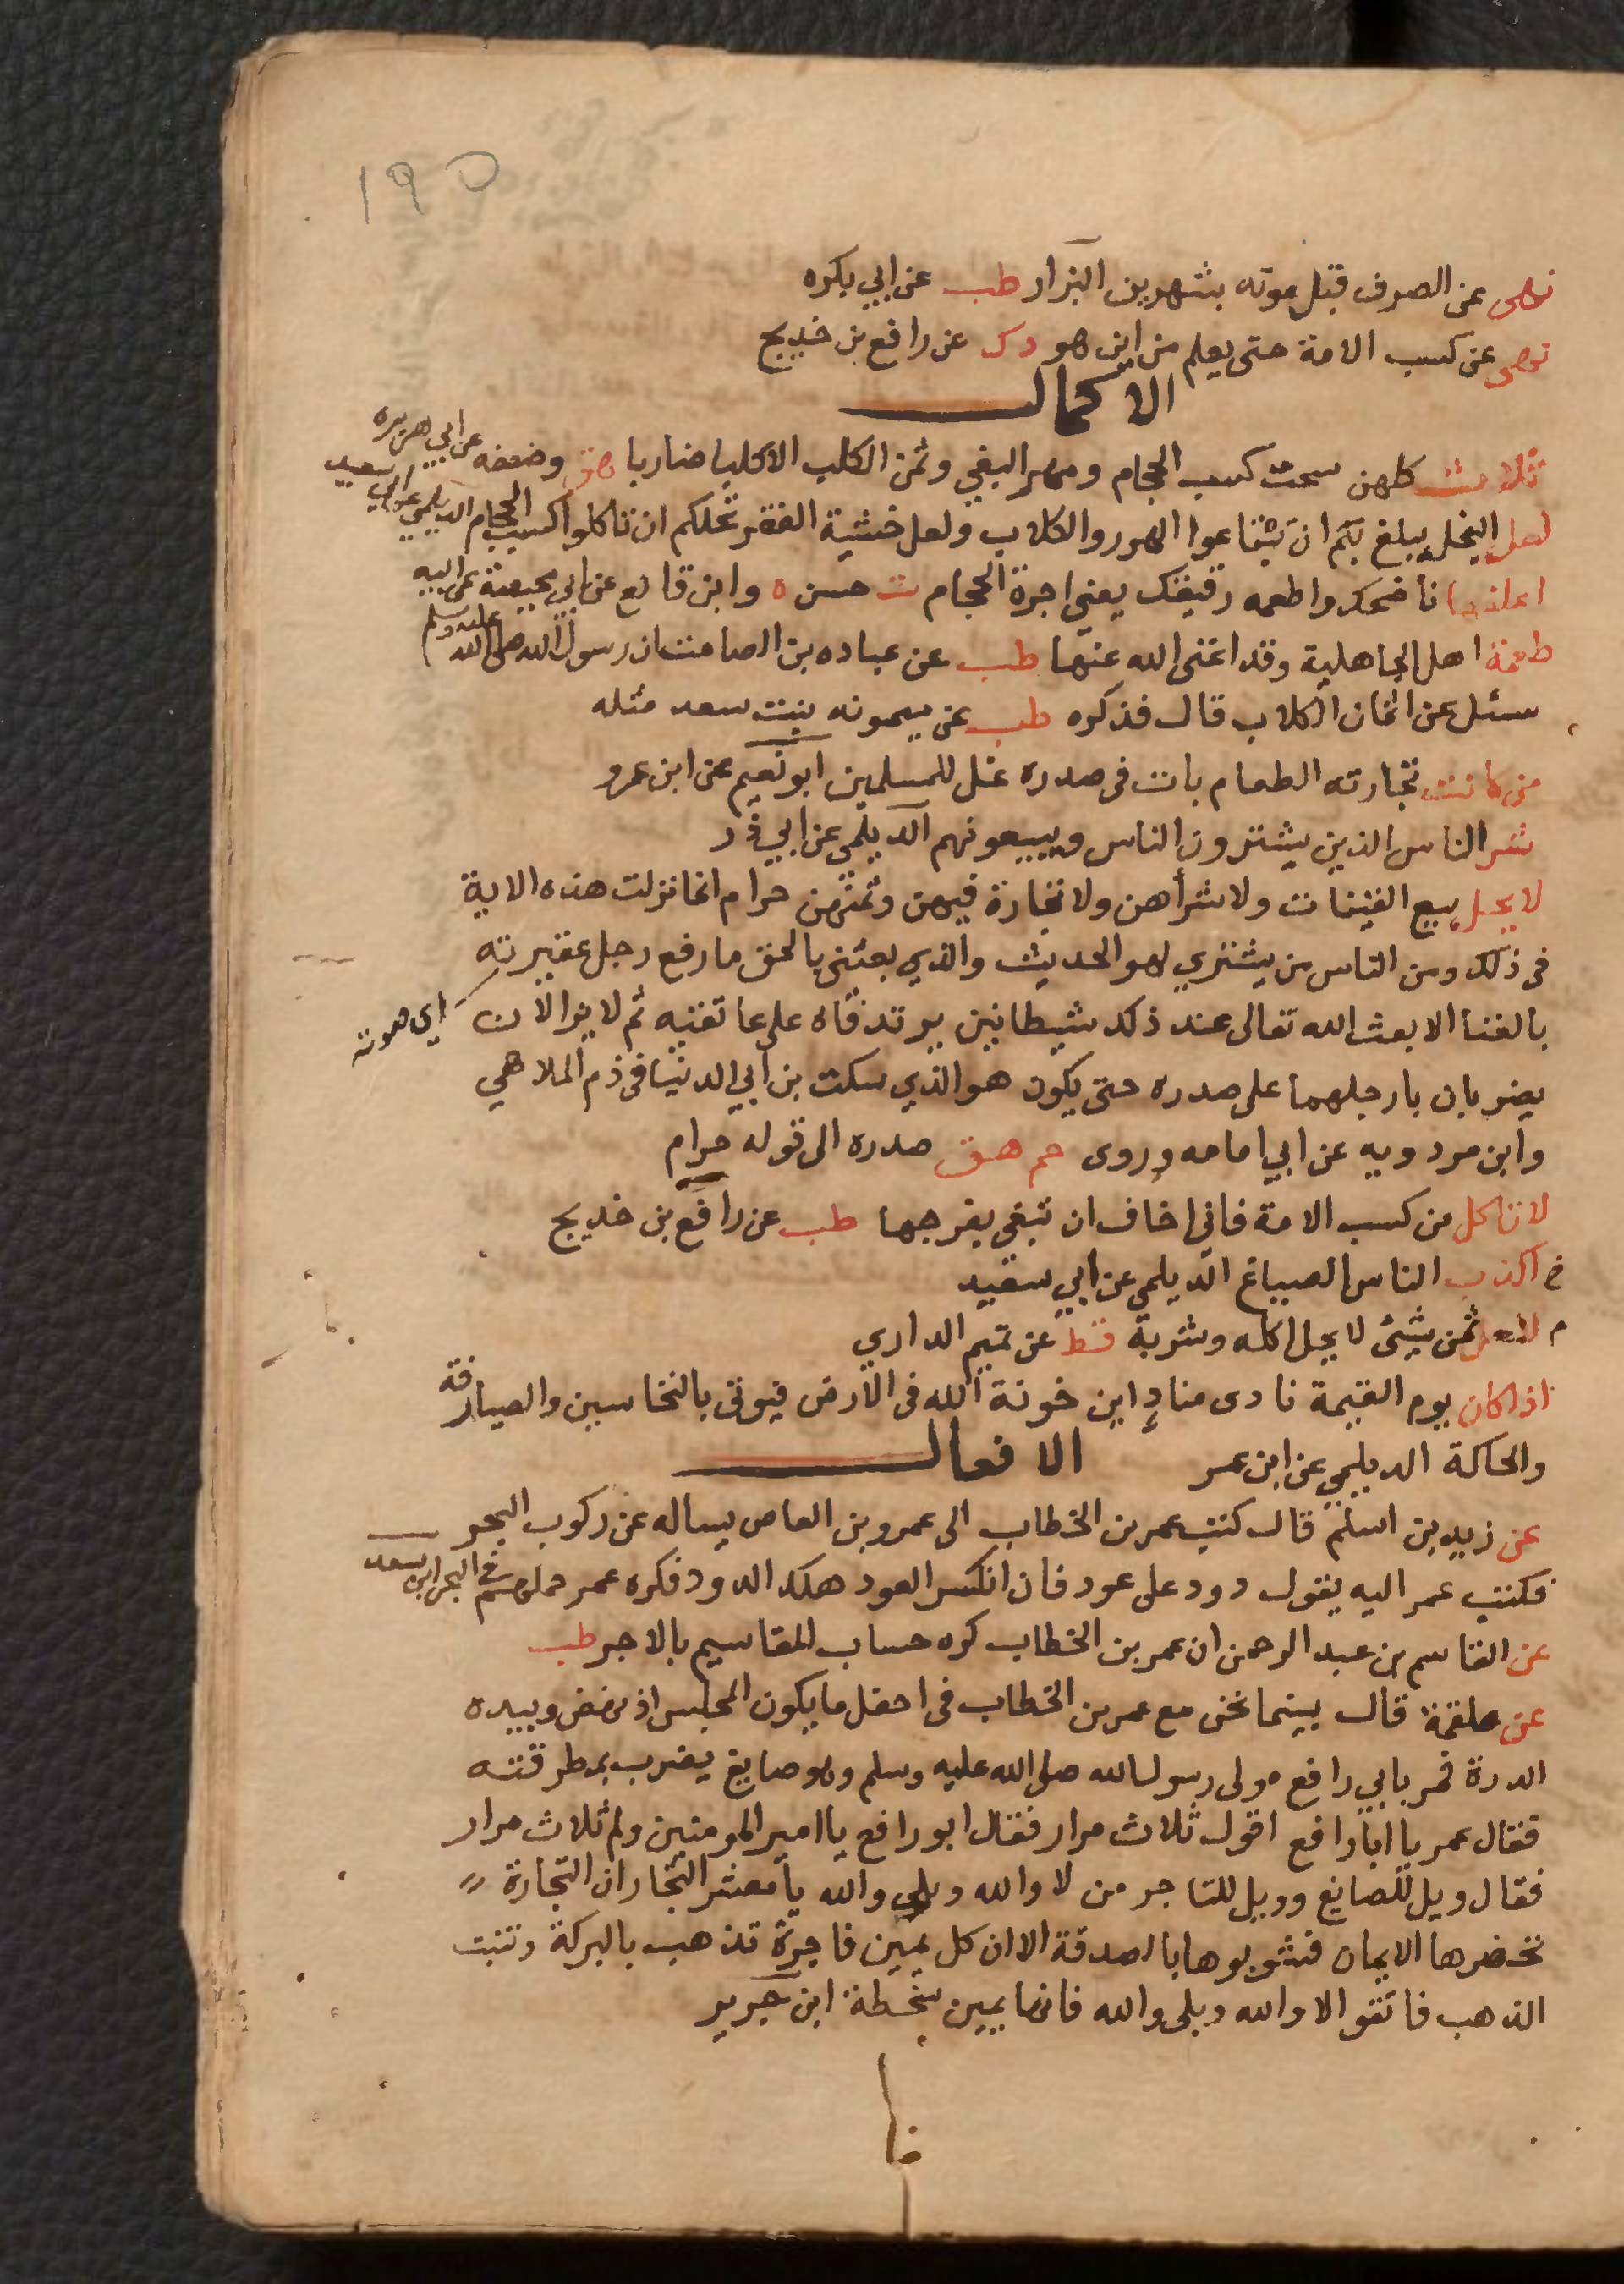 ١٩٥
نهى عن الصرف قبل موته بشهرين البزار طب عن ابي بكره
نهى عن كسب الامة حتى يعلم من اين هو د ك عن رافع بن خديج
الاكمال
ثلاث كلهن سحت كسب الحجام ومهر البغي وثمن الكلب الا كلبا ضاريا هق وضعفه عن ابي هريره
لعل البخل يبلغ بكم ان تبتاعوا الهور والكلاب ولعل خشية الفقر تحلكم ان تاكلوا كسب الحجام الديلمي عن ابي سعيد
اعلفه ناضحك واطعمه رقيقك يعني اجرة الحجام ت حسن ه وابن قانع عن ابي محيصة عن ابيه
طعمة اهل الجاهلية وقد اغنى الله عنها طب عن عباده بن الصامت ان رسول الله صلى الله عليه وسلم
سئل عن اثمان الكلاب قال فذكره طب عن ميمونه بنت سعد مثله
من كانت تجارته الطعام بات فى صدره غل للمسلمين ابو نعيم عن ابن عمرو
شر الناس الذين يشترون الناس ويبيعونهم الديلمي عن ابي ذر
لا يحل بيع القينات ولا شراهن ولا تجارة فيهن وثمنهن حرام انما نزلت هذه الاية
فى ذلك ومن الناس من يشتري لهو الحديث والذي بعثني بالحق ما رفع رجل عقيرته
اي صوته
بالغنا الا بعث الله تعالى عند ذلك شيطانين يرتدفاه على عاتقيه ثم لا يزالان
يضربان بارجلهما على صدره حتى يكون هو الذي سكت بن ابي الدنيا فى ذم الملاهي
وابن مردويه عن ابي امامه وروى حم هق صدره الى قوله حرام
لا تاكل من كسب الامة فاني اخاف ان تبغي بفرجها طب عن رافع بن خديج
خ اكذب الناس الصباغ الديلمي عن ابي سعيد
م لا يحل ثمن شيئ لا يحل اكله وشربه قط عن تميم الداري
اذا كان يوم القيمة نادى مناد اين خونة الله فى الارض فيوتى بالنخاسين والصيارفة
والحاكة الديلمي عن ابن عمر
الافعال
عن زيد بن اسلم قال كتب عمر بن الخطاب الى عمرو بن العاص يساله عن ركوب البحر
فكتب عمر اليه يقول دود على عود فان انكسر العود هلك الدود فكره عمر حملهم فى البحر ابن سعد
عن القاسم بن عبد الرحمن ان عمر بن الخطاب كره حساب المقاسيم بالاجر طب
عن علقمة قال بينما نحن مع عمر بن الخطاب فى احفل ما يكون المجلس اذ نهض وبيده
الدرة فمر بابي رافع مولى رسول الله صلى الله عليه وسلم وهو صايغ يضرب بمطرقته
فقال عمر يا ابا رافع اقول ثلاث مرار فقال ابو رافع يا امير المومنين ولم ثلاث مرار
فقال ويل للصايغ وويل للتاجر من لا والله وبلى والله يا معشر التجار ان التجارة
تحضرها الايمان فشوبوها بالصدقة الا ان كل يمين فاجرة تذهب بالبركة وتنبت
الذهب فاتقوا لا والله وبلى والله فانها يمين سخطة ابن جرير